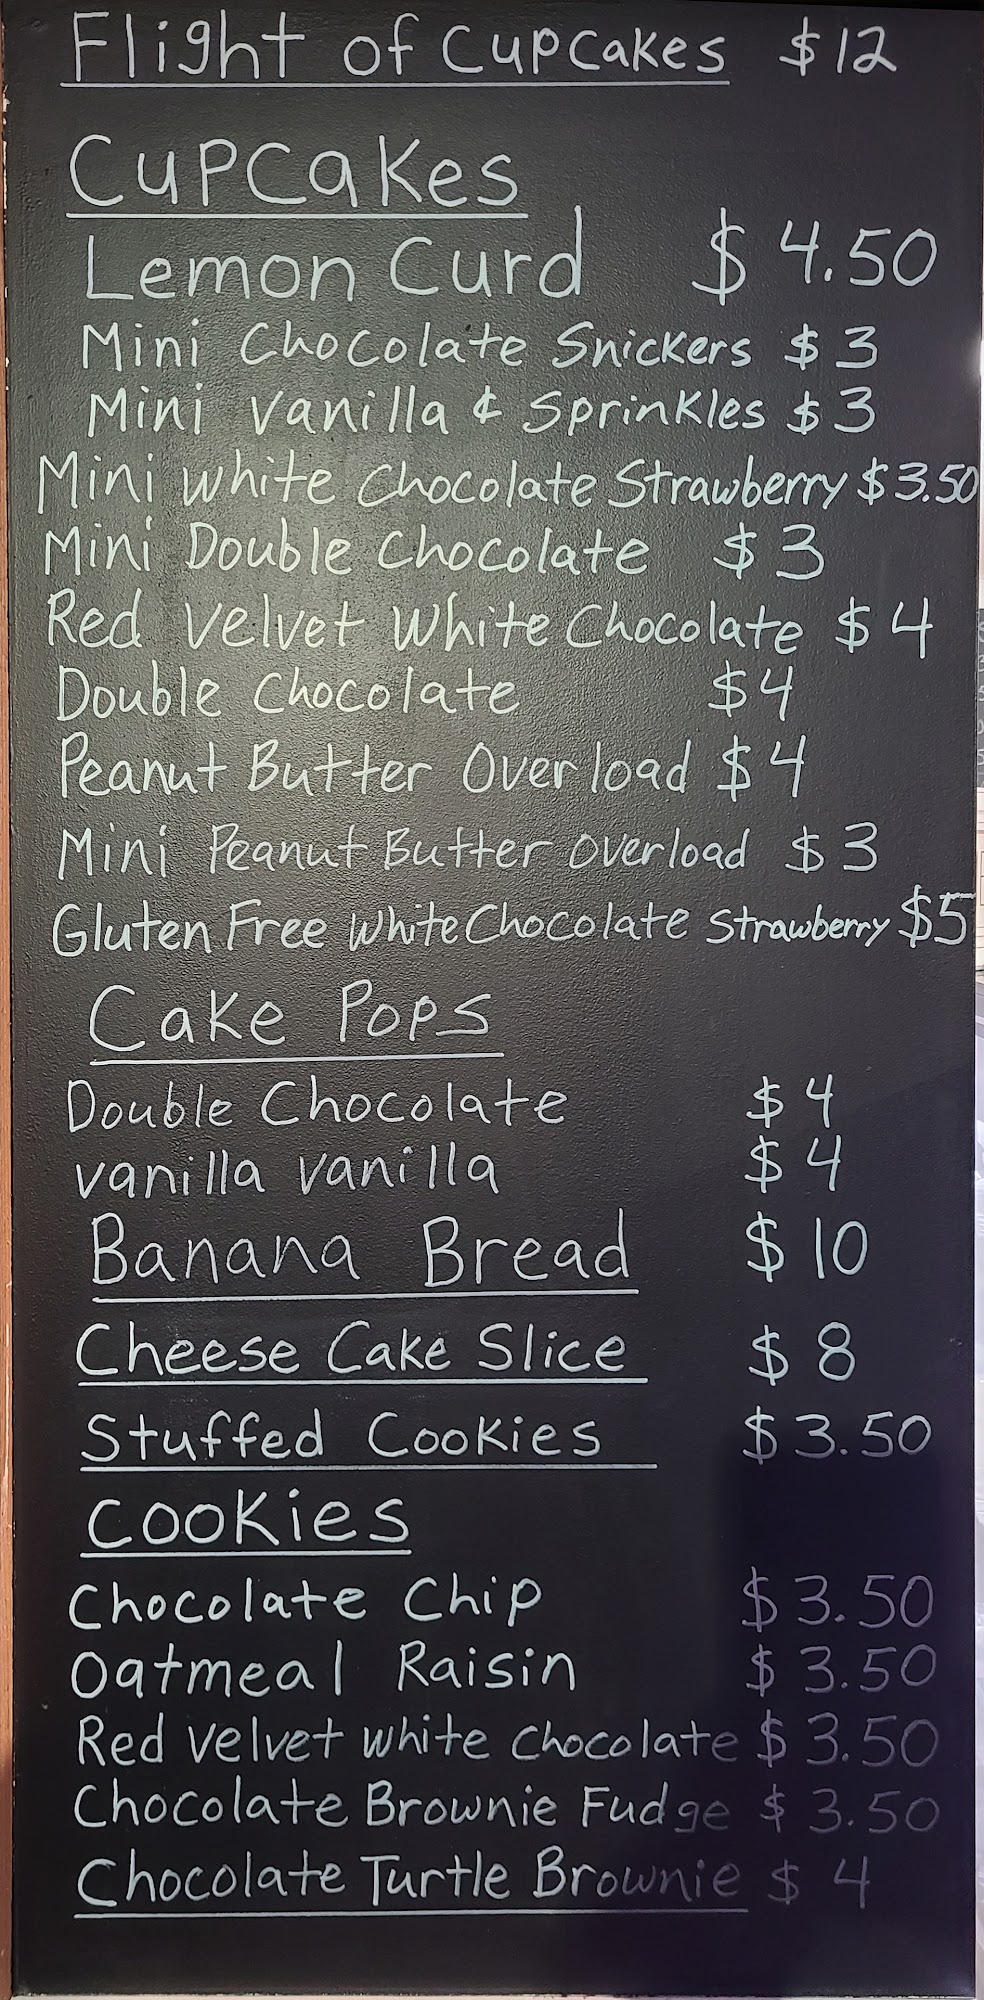 Flight of Cupcakes $12
Cupcakes
Lemon Curd $4.50
Mini Chocolate Snickers $3
Mini Vanilla & Sprinkles $3
Mini White Chocolate Strawberry $3.50
Mini Double Chocolate $3
Red Velvet White Chocolate $4
Double Chocolate $4
Peanut Butter Overload $4
Mini Peanut Butter Overload $3
Gluten Free White Chocolate Strawberry $5
Cake Pops
Double Chocolate $4
Vanilla Vanilla $4
Banana Bread $10
Cheese Cake Slice $8
Stuffed Cookies $3.50
Cookies
Chocolate Chip $3.50
Oatmeal Raisin $3.50
Red Velvet White Chocolate $3.50
Chocolate Brownie Fudge $3.50
Chocolate Turtle Brownie $4